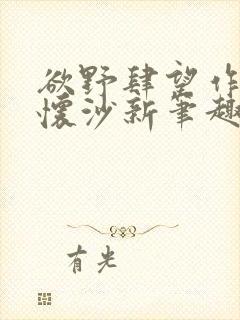 欲野肆望作
懐沙新笔趣
有光